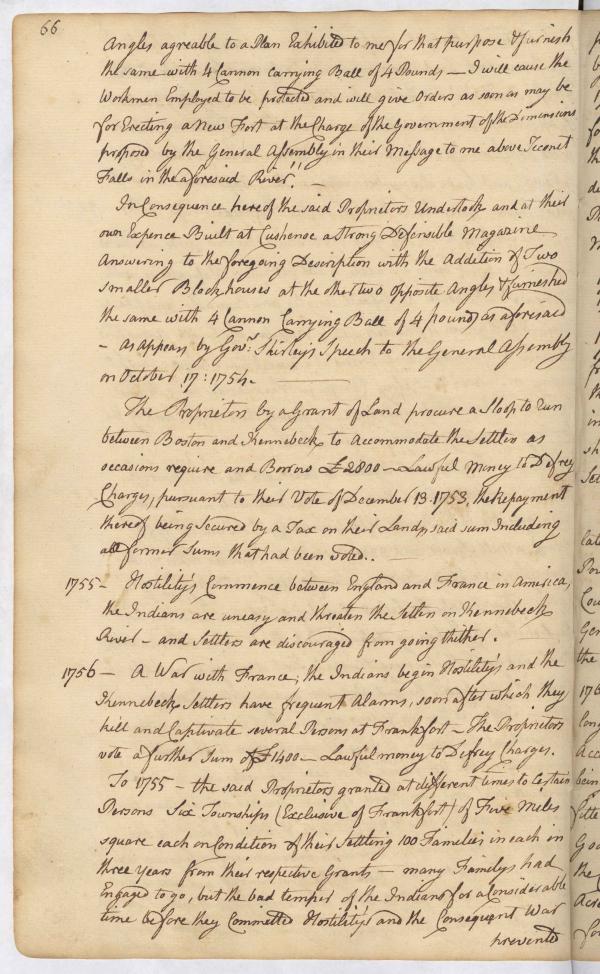 66
Angles agreable to a Plan Exhibited to me for that purpose & furnish
the same with 4 Cannon carrying Ball of 4 Pounds — I will cause the
Workmen Employed to be protected and will give Orders as soon as may be
for Erecting a New Fort at the Charge of the Government of the Dimensions
proposed by the General Assembly in their Message to me above Teconet
Falls in the aforesaid River." —
In Consequence hereof the said Proprietors Undertook and at their
own Expence Built at Cushenoc a Strong Defensible Magazine
Answering to the foregoing Description with the Addetion of Two
smaller Blockhouses at the other two opposite Angles & furnished
the same with 4 Cannon Carrying Ball of 4 pound as aforesaid
– as appears by Govr. Shirley's Speech to the General Assembly
on October 17: 1754. —
The Proprietors by a Grant of Land procure a Sloop to run
between Boston and Kennebeck to Accommodate the Settlers as
occasions require and Borrow £2800 – Lawful Money to Defrey
Charges, pursuant to their Vote of December 13. 1753, the Repayment
thereof being Secured by a Tax on their Lands, said sum Including
all former Sums that had been voted..
1755 – Hostility's Commence between England and France in America,
the Indians are uneasy and threaten the Settlers on Kennebeck
River – and Settlers are discouraged from going thither.
1756 – A War with France, the Indians begin Hostility's and the
Kennebeck Settlers have frequent Alarms, soon after which they
kill and Captivate several Persons at Frankfort – The Proprietors
vote a further Sum of £1400 – Lawful money to Defrey Charges.
To 1755 – the said Proprietors granted at different times to Certain
Persons Six Townships (Exclusive of Frankfort) of Five Miles
square each on Condition of their Settling 100 Families in each in
three years from their respective Grants – many Familys had
Engaged to go, but the bad temper of the Indians for a Considerable
time before they Committed Hostility's and the Consequent War
prevented